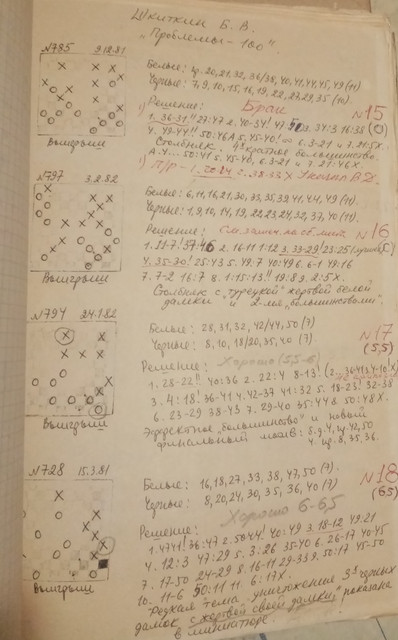 Шкиткин Б. В.
"Проблемы-100".
№785 9.12.81
Выигрыш
Белые: 20,21,32,36/38,40,41,44,45,49 (11)
Черные: 7,9,10,15,16,19,22,27,29,35 (10)
Решение: Брак №15
1. 36-31!! 27:47 2. 40-34! 47:50 3. 34:3 16:38 (0)
4. 49-44!! 50:46A 5. 45-40! ∞ 6. 3-21 и 7. 21:5X.
Столбняк. 4-кратное большинство.
A. 4... 50:41 5. 45-40, 6. 3-21 и 7. 21:46X.
№797 3.2.82
Выигрыш
Белые: 6,11,16,21,30,33,35,39,41,44,49 (11)
Черные: 1,9,10,14,19,22,23,24,32,37,40 (11).
Решение: №16
4. 35-30! 25:43 5. 49:7 40:49 6. 6-1 49:16
7. 7-2 16:7 8. 1:15:13!! 19:8 9. 2:5X.
Столбняк с "турецкой" жертвой белой
дамки и 2-мя "большинствами".
№794 24.1.82
Выигрыш
Белые: 28,31,32,42/44,50 (7)
Черные: 8,10,18/20,35,40 (7).
Решение: Хорошо (5,5-6) №17
(5,5)
1. 28-22!! 40:36 2. 22:4 8-13!
3. 4:18! 36-41 4. 42-37 41:32 5. 18-23! 32-38
6. 23-29 38-43 7. 29-40 35:44 8. 50:48X.
Эффектное "большинство" и новый
финальный мотив: б.д.4, пр.42,50
ч. пр.8,35,36.
№728 15.3.81
Выигрыш
Белые: 16,18,27,33,38,47,50 (7).
Черные: 8,20,24,30,35,36,40 (7)
Решение: Хорошо 6-6,5 №18
(6,5)
1. 47-41! 36:47 2. 50:44! 40:49 3. 18-12 49:21
4. 12:3 47:29 5. 3:26 35-40 6. 26-17 40-45
7. 17-50 24-29 8. 16-11 29-33 9. 50:17 45-50
10. 11-6 50:11 11. 6:17X.
Редкая тема: уничтожение 3х черных
дамок с жертвой своей дамки, показана
в миниатюре.